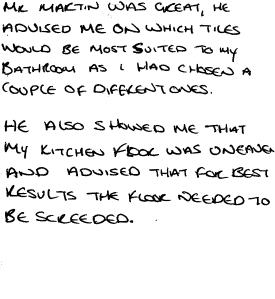 MR MARTIN WAS GREAT, HE
ADVISED ME ON WHICH TILES
WOULD BE MOST SUITED TO MY
BATHROOM AS I HAD CHOSEN A
COUPLE OF DIFFERENT ONES.
HE ALSO SHOWED ME THAT
MY KITCHEN FLOOR WAS UNEAVEN
AND ADVISED THAT FOR BEST
RESULTS THE FLOOR NEEDED TO
BE SCREEDED.